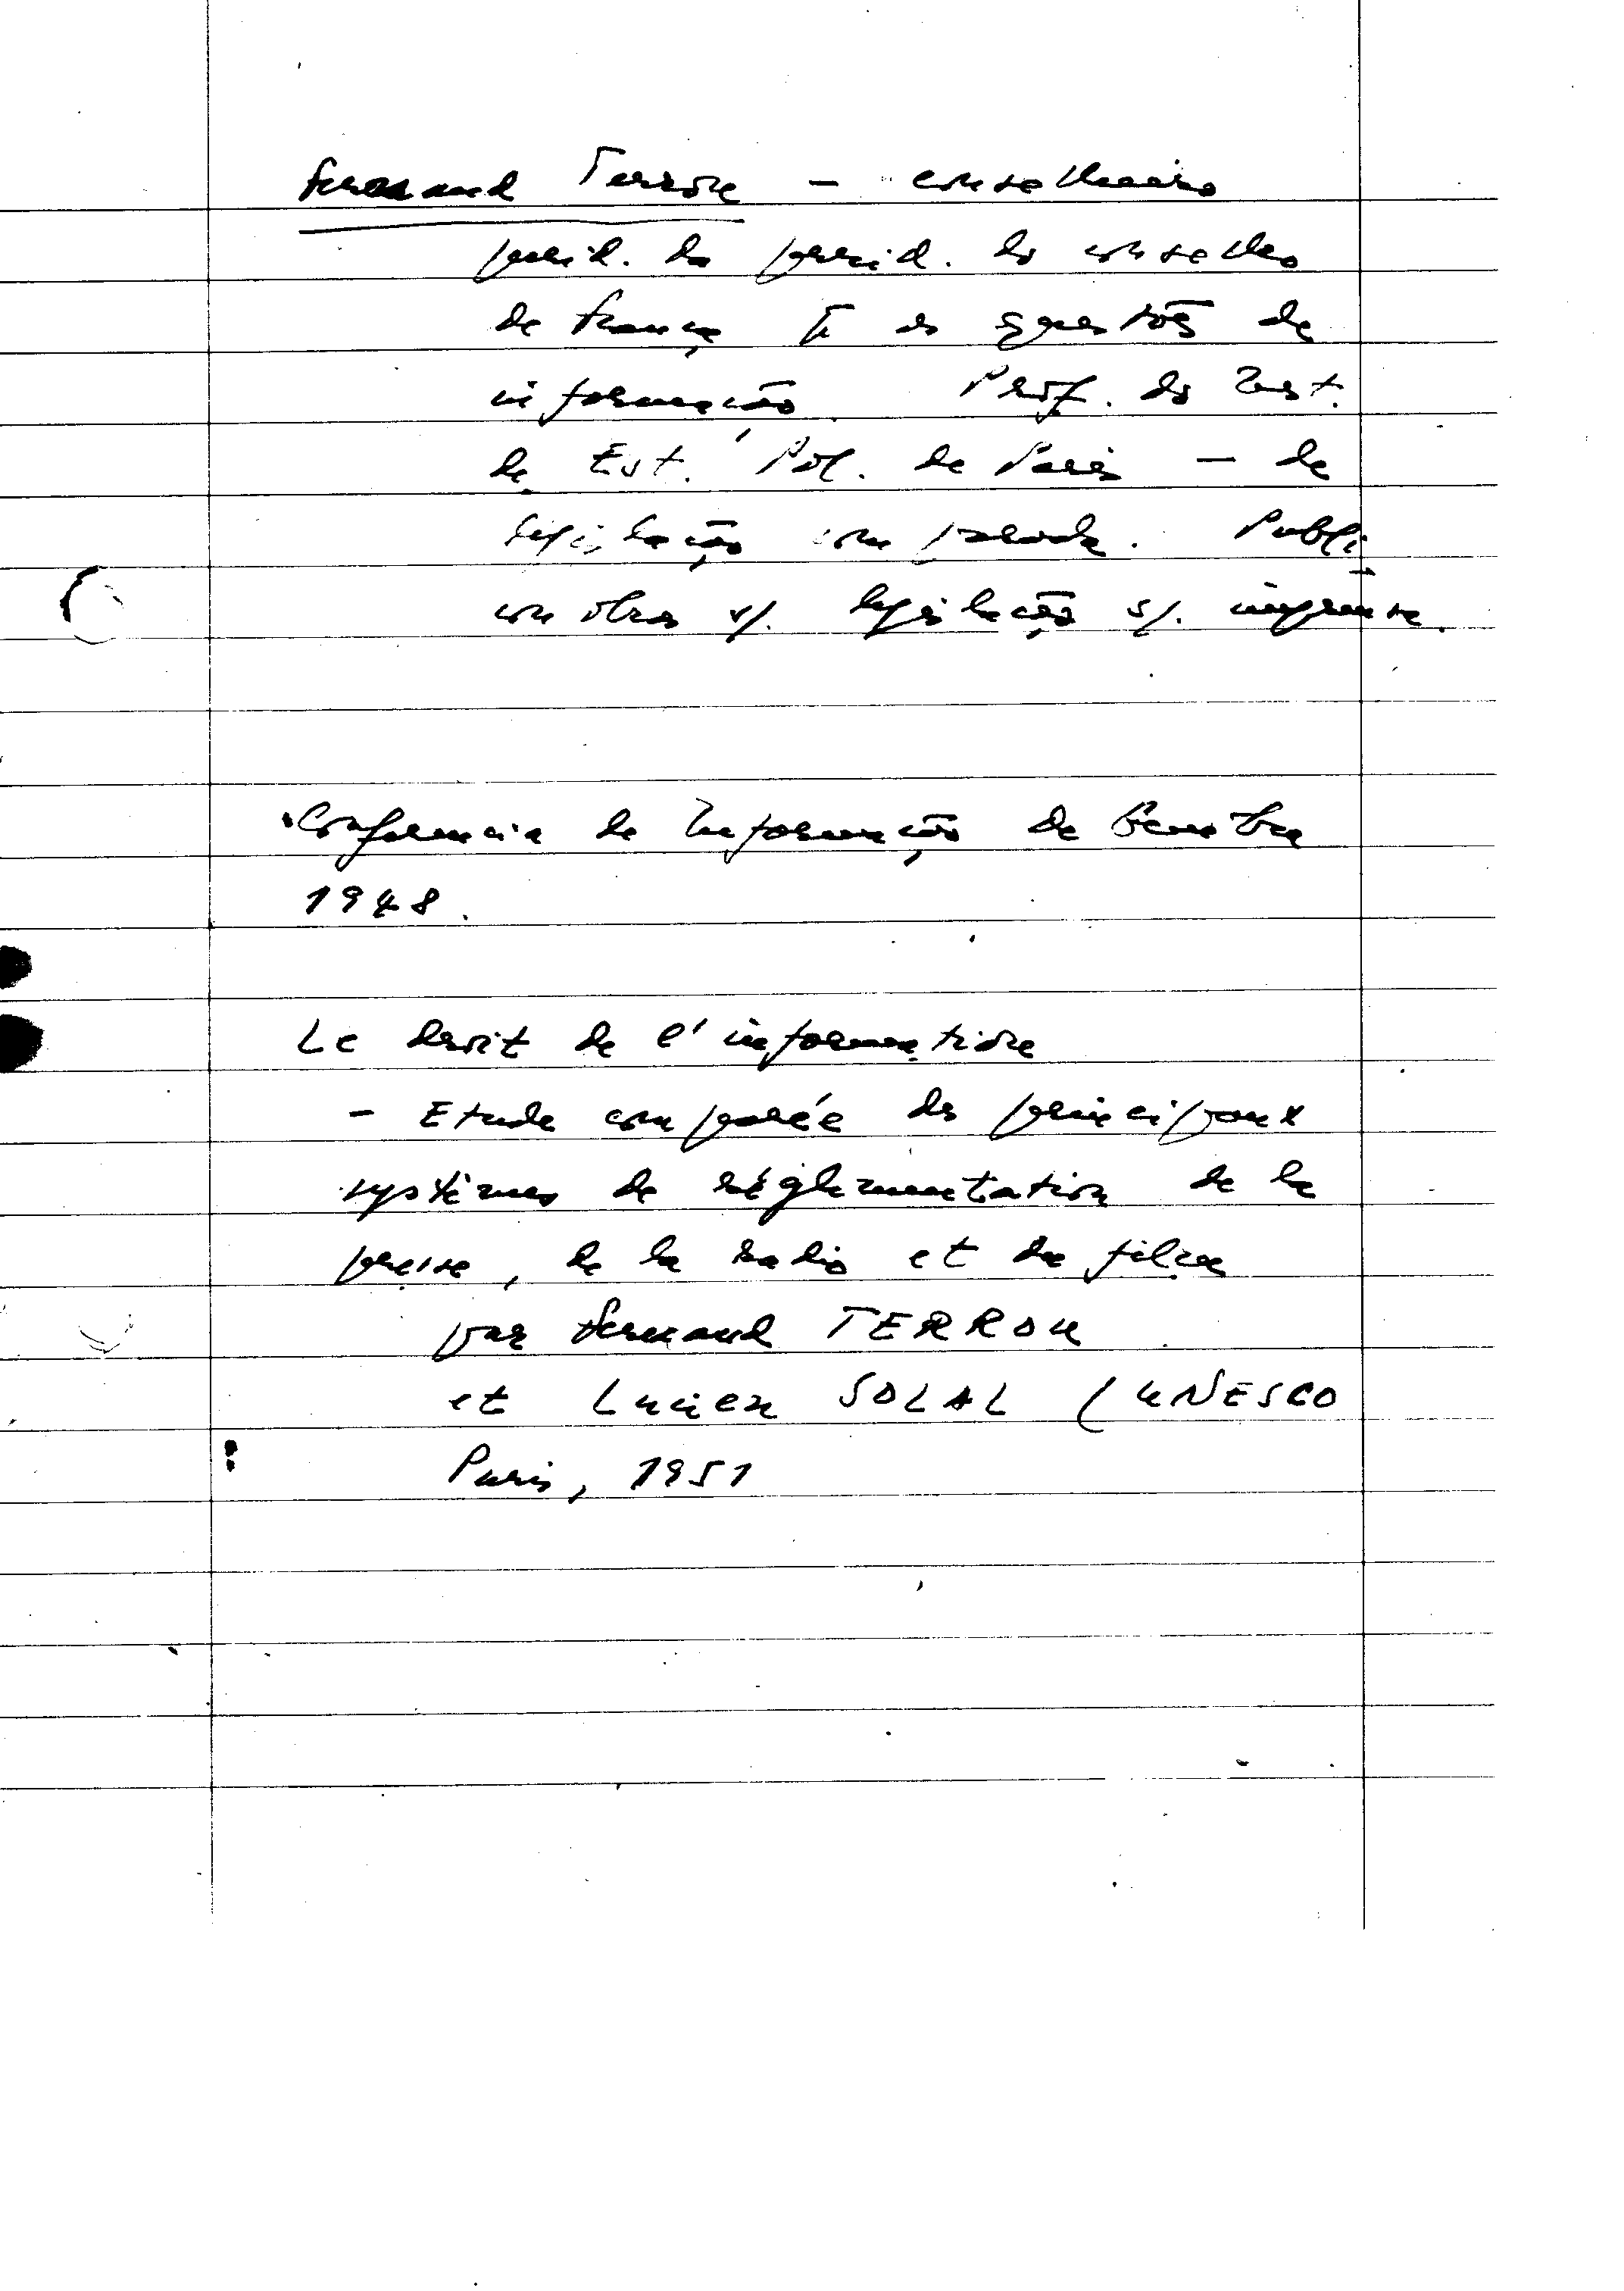 Fernand Terron — conselheiro
jurid. da presid. do conselho
de França p/ as questões de
informação. Prof. do Inst.
de Est. Pol. de Paris — de
legislação comparada. Publi
cou obras s/. legislação s/. imprensa.
Conferencia de Informação de Genebra
1948.
Le droit de l'information
— Etude comparée des principaux
systèmes de réglementation de la
presse, de la radio et du film
par Fernand TERROU
et Lucien SOLAL (UNESCO
Paris, 1951